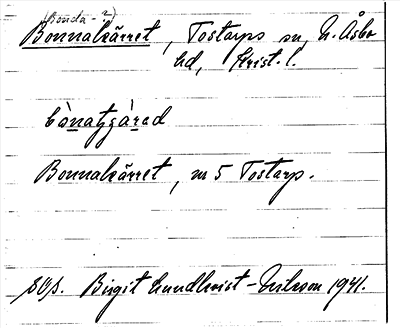 (Bonda-?)
Bonnakärret, Tostarps sn, N. Åsbo
hd, Krist. l.
Bonnakärret, nr 5 Tostarp.
SOS. Birgit Lundkvist-Nilsson 1941.